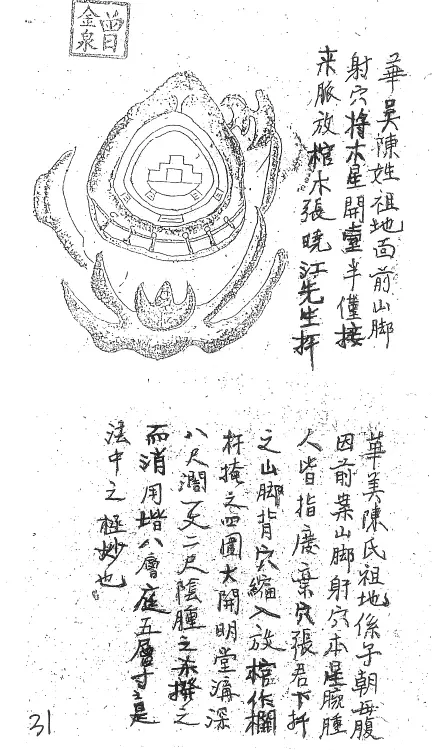 曾金泉
華吴陳姓祖地面前山脚
射穴将木星開臺半僅接
来脈放棺木張曉江先生扦
華美陳氏祖地係子朝母腹
因前葉山脚射穴本星腕腫
人皆指廢棄穴張君下扦
之山脚背穴縮入放棺作欄
杆掩之四圍大開明堂溝深
八尺濶一丈二尺陰腫之
而消用堦八層庭五層寸之是
法中之極妙也
31